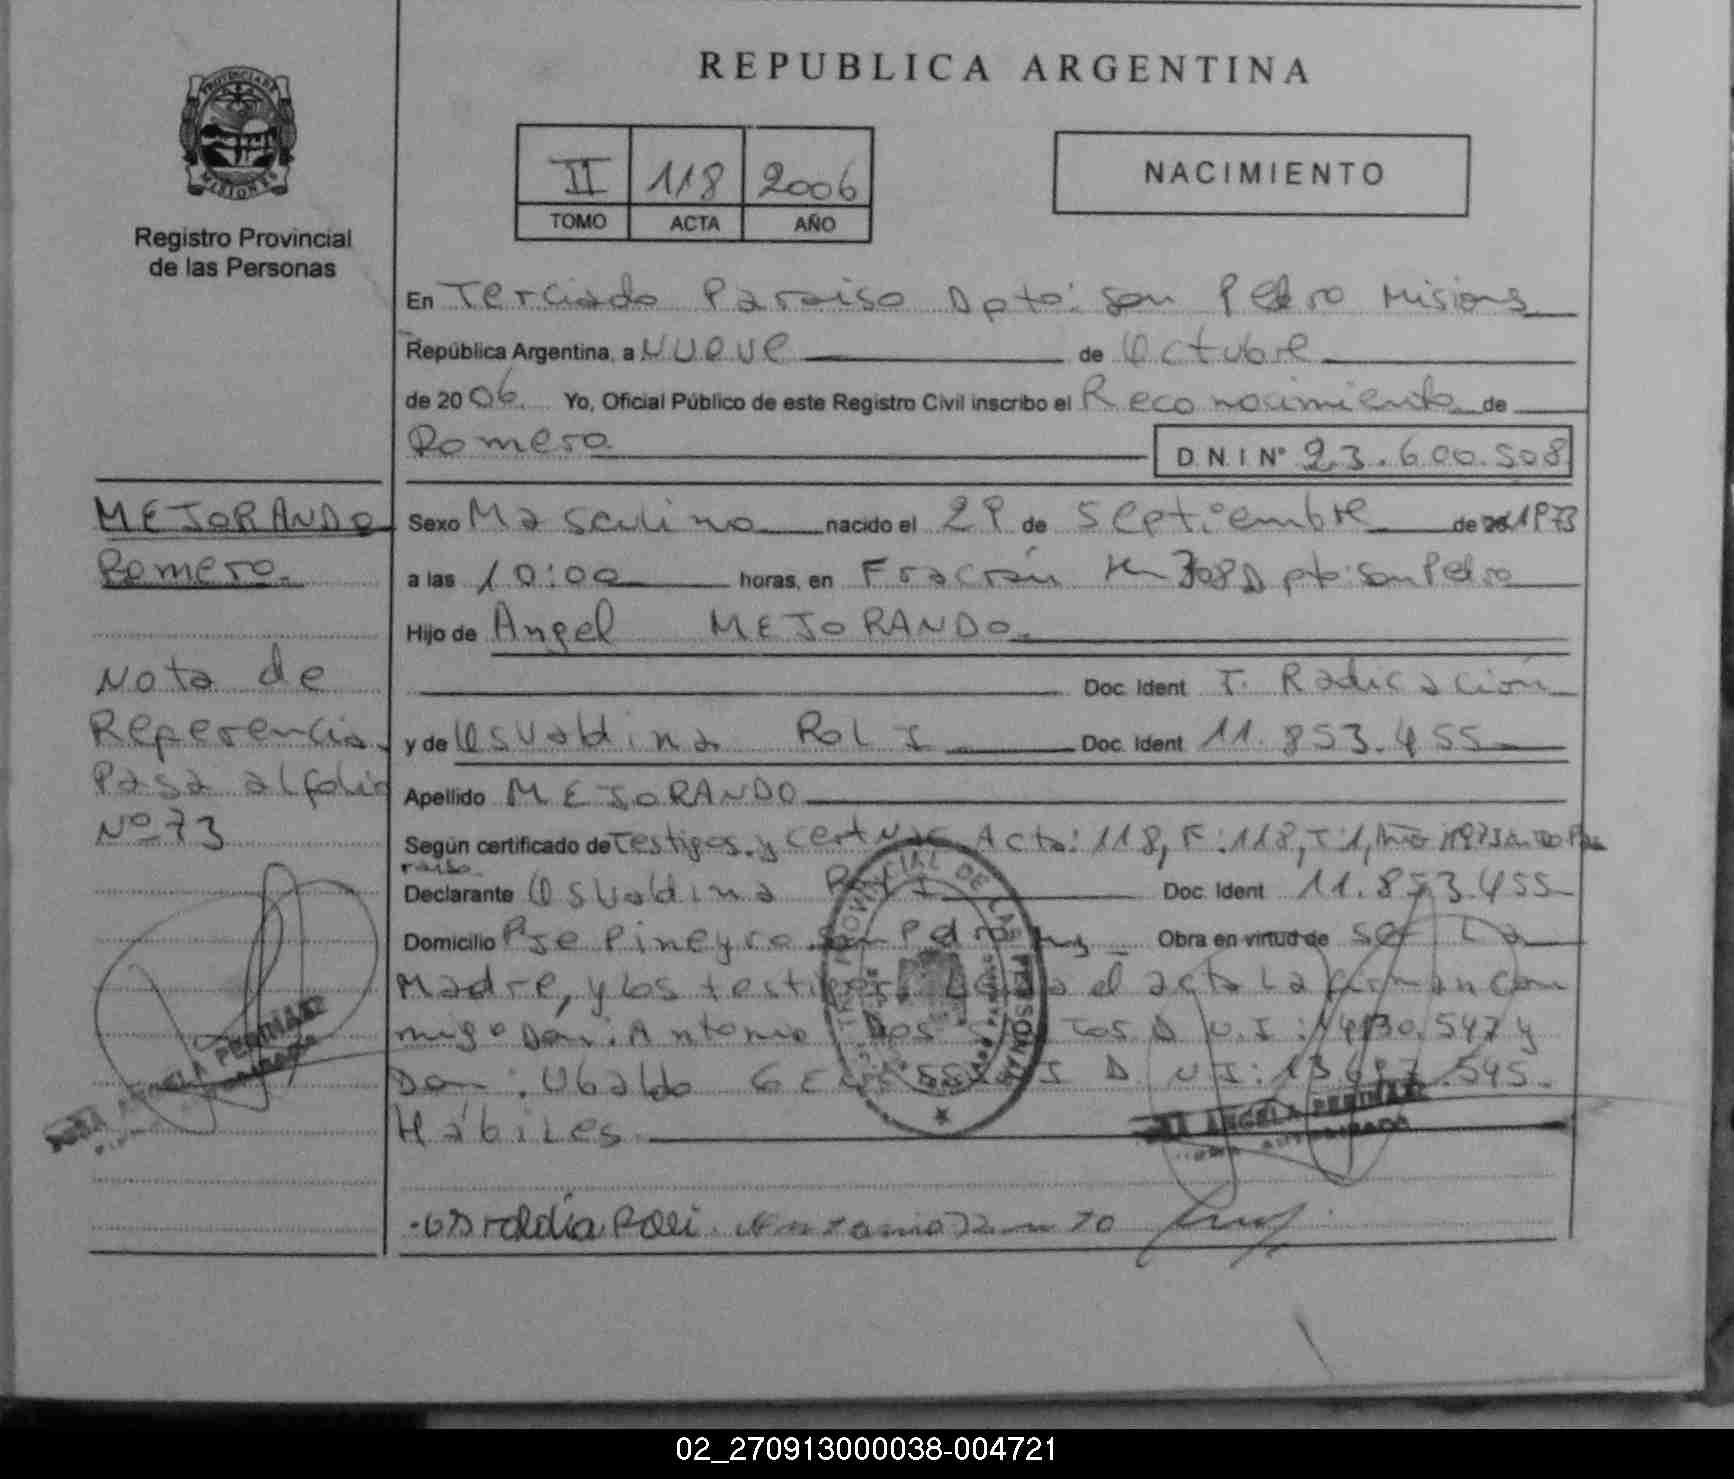 REPUBLICA ARGENTINA
PROVINCIA DE
MISIONES
Registro Provincial
de las Personas
II 118 2006
TOMO ACTA AÑO
NACIMIENTO
En Terciado Paraiso Dpto: San Pedro Misions
República Argentina, a Nueve de Octubre
de 2006. Yo, Oficial Público de este Registro Civil inscribo el Reconocimiento de
Romero D.N.I Nº 23.600.508
Sexo Masculino nacido el 29 de Septiembre de 1973
a las 10:00 horas, en Fracrán Km 308 Dpto: San Pedro
Hijo de Angel MEJORANDO.
Doc. Ident T. Radicación
y de Osvaldina Roli Doc. Ident 11.853.455
Apellido MEJORANDO
Según certificado de Testigos y cert Nac Acta: 118, F: 118, T: 1, Año 1973
raiso
Declarante Osvaldina Doc. Ident 11.853.455
Domicilio Pje Pineyro San Pedro Obra en virtud de ser La
Madre, y los testigos el acta La firman con
migo Don: Antonio Dos Santos D.N.I:
Don: Ubaldo D.N.I: .545.
Hábiles
MEJORANDO
Romero.
Nota de
Referencia.
Pasa al folio
Nº 73
PROVINCIAL DE LAS PERSONAS
ANGELA
ANGELA
Roli Antonio
02_270913000038-004721